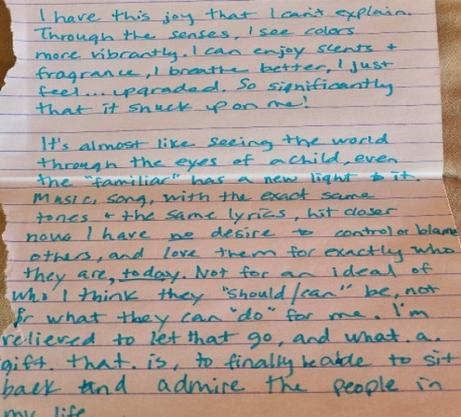 I have this joy that I can't explain.
Through the senses, I see colors
more vibrantly. I can enjoy scents +
fragrance, I breathe better, I just
feel... upgraded. So significantly
that it snuck up on me!
It's almost like seeing the world
through the eyes of a child, even
the "familiar" has a new light to it.
Music, song, with the exact same
tones + the same lyrics, hit closer
now I have no desire to control or blame
others, and love them for exactly who
they are, today. Not for an ideal of
who I think they "should/can" be, not
for what they can "do" for me. I'm
relieved to let that go, and what a
gift. that. is, to finally be able to sit
back and admire the people in
my life